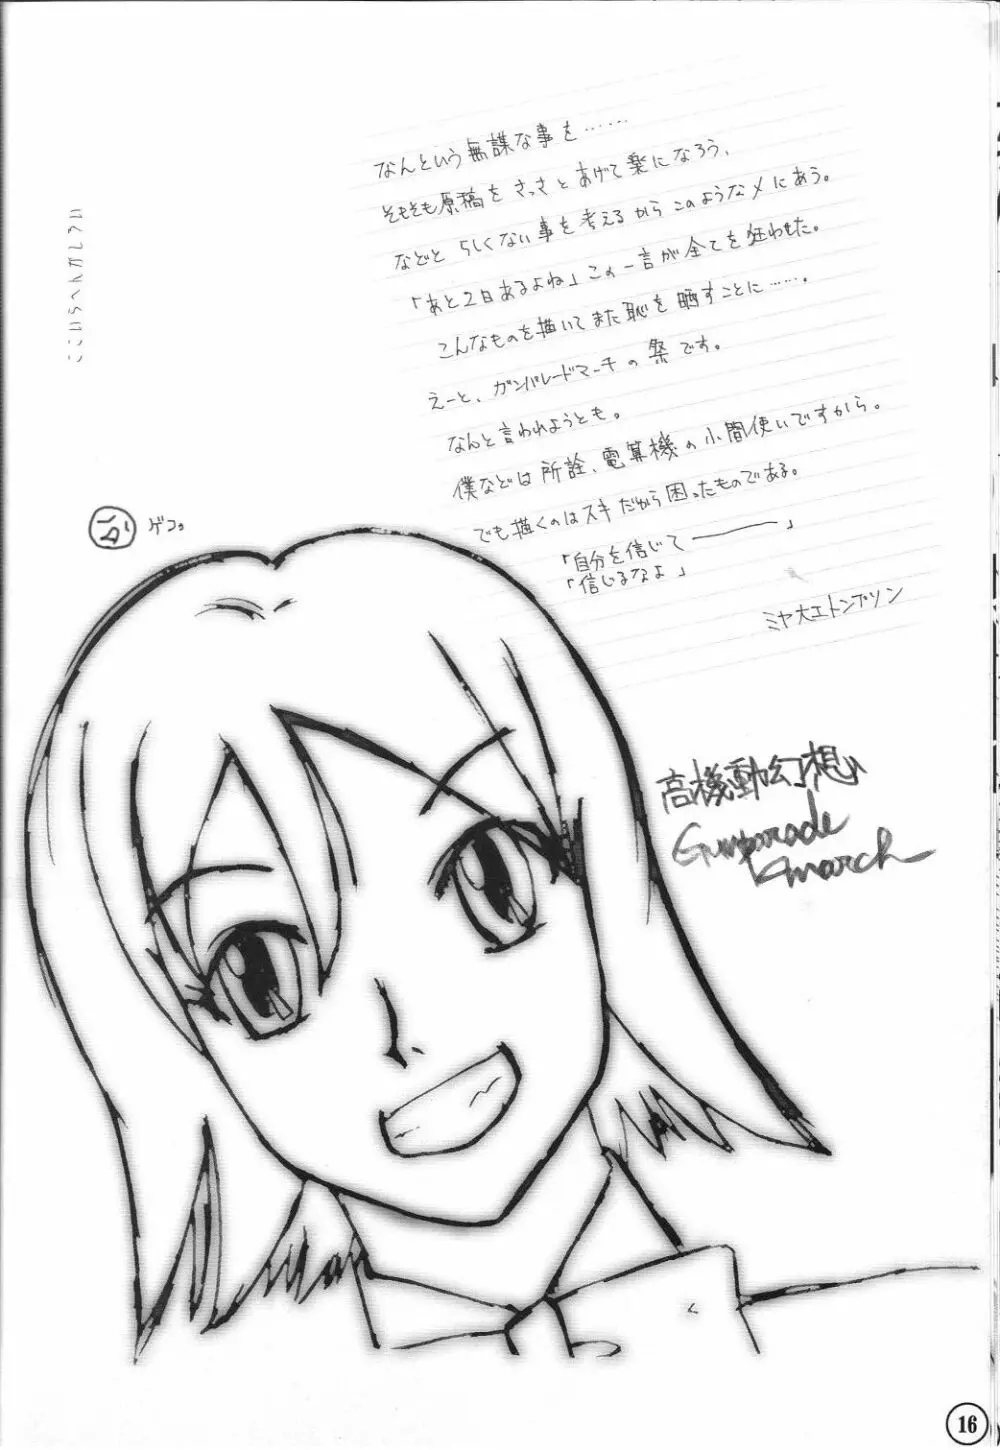 なんという無謀な事を……
そもそも原稿をさっさとあげて楽になろう、
などとらしくない事を考えるからこのようなメにあう。
「あと2日あるよね」この一言が全てを狂わせた。
こんなものを描いてまた恥を晒すことに……。
えーと、ガンパレードマーチの祭です。
なんと言われようとも。
僕などは所詮、電算機の小間使いですから。
でも描くのはスキだから困ったものである。
「自分を信じて───」
「信じるなよ」
ミヤ大エトンプソン
ゲコ。
高機動幻想
Gunparade
march
16